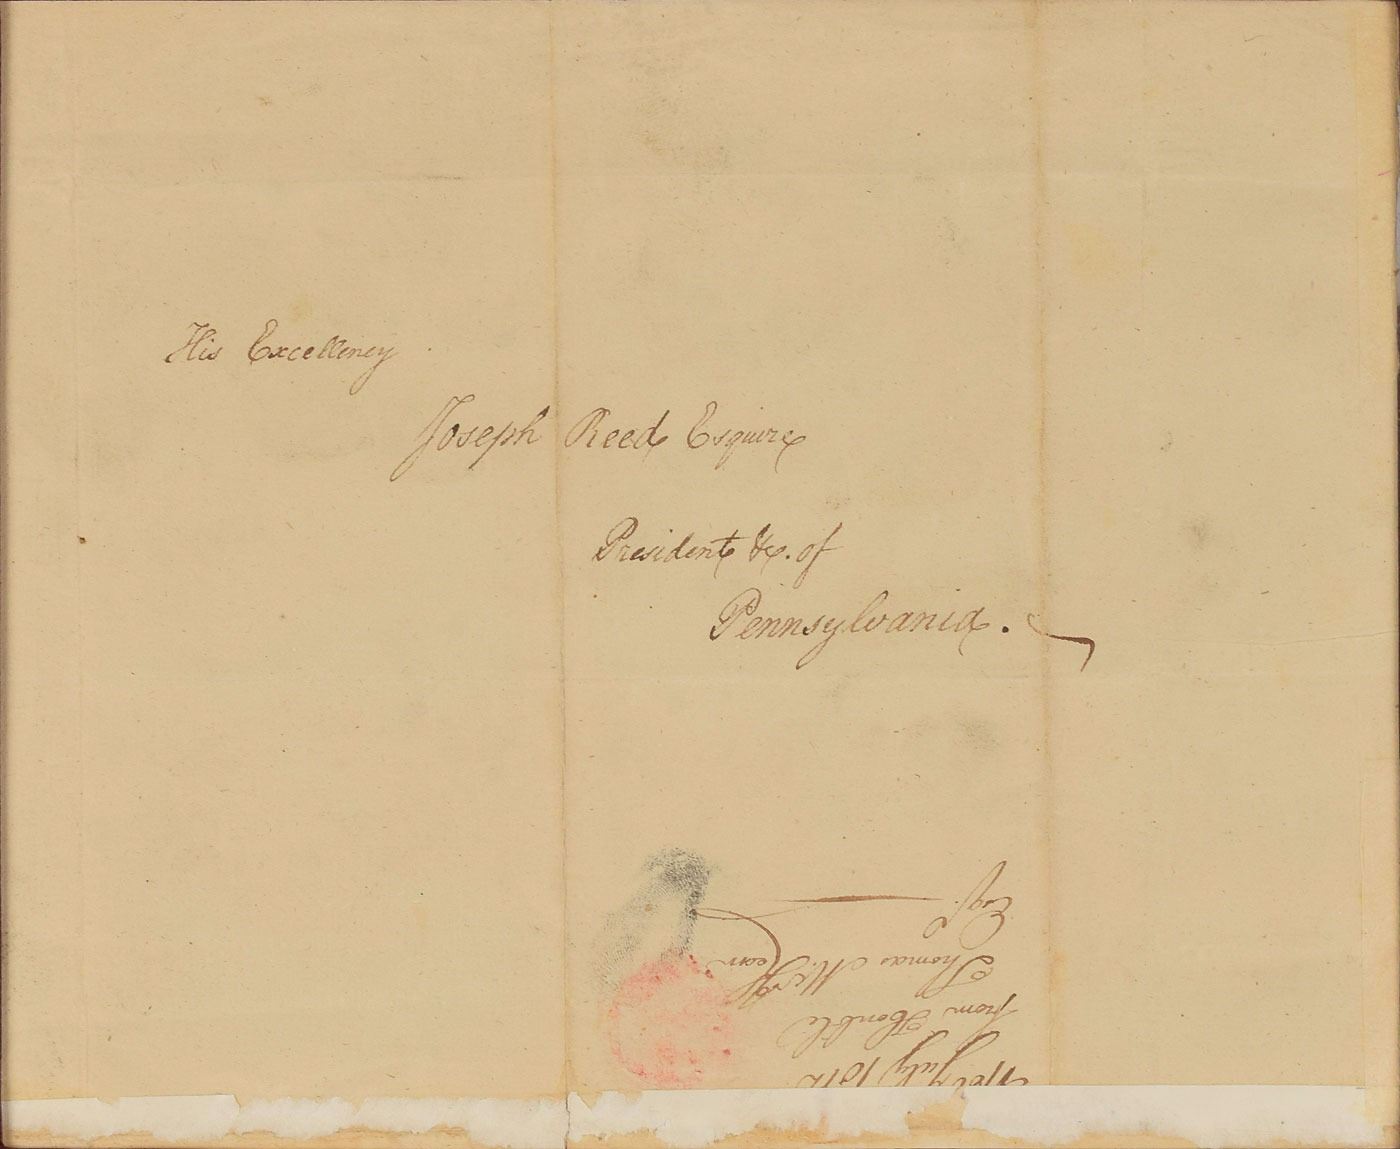 His Excellency
Joseph Reed Esquire
President &c. of
Pennsylvania.
July 10th
from Honble
Thomas McKean
Esqr.